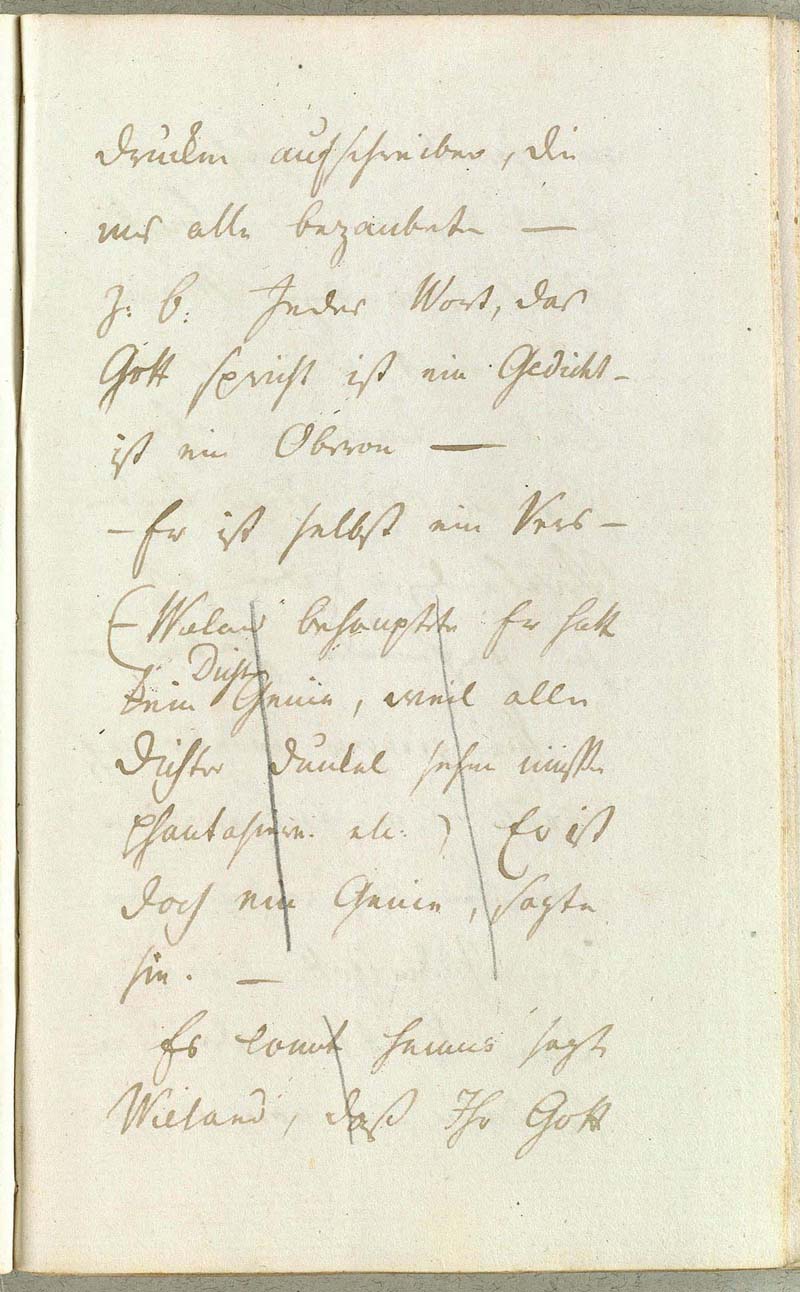 drucken aufschreiben, die
uns alle bezauberte —
z: b: Jedes Wort, das
Gott spricht ist ein Gedicht –
ist ein Oberon —
– Er ist selbst ein Vers –
(– Wieland behauptete Er hatt
Dichter
kein Genie, weil alle
Dichter dunkel sehen müssen
phantasiren. etc. ) Er ist
doch ein Genie, sagte
sie. —
Es kommt heraus sagte
Wieland, daß Ihr Gott